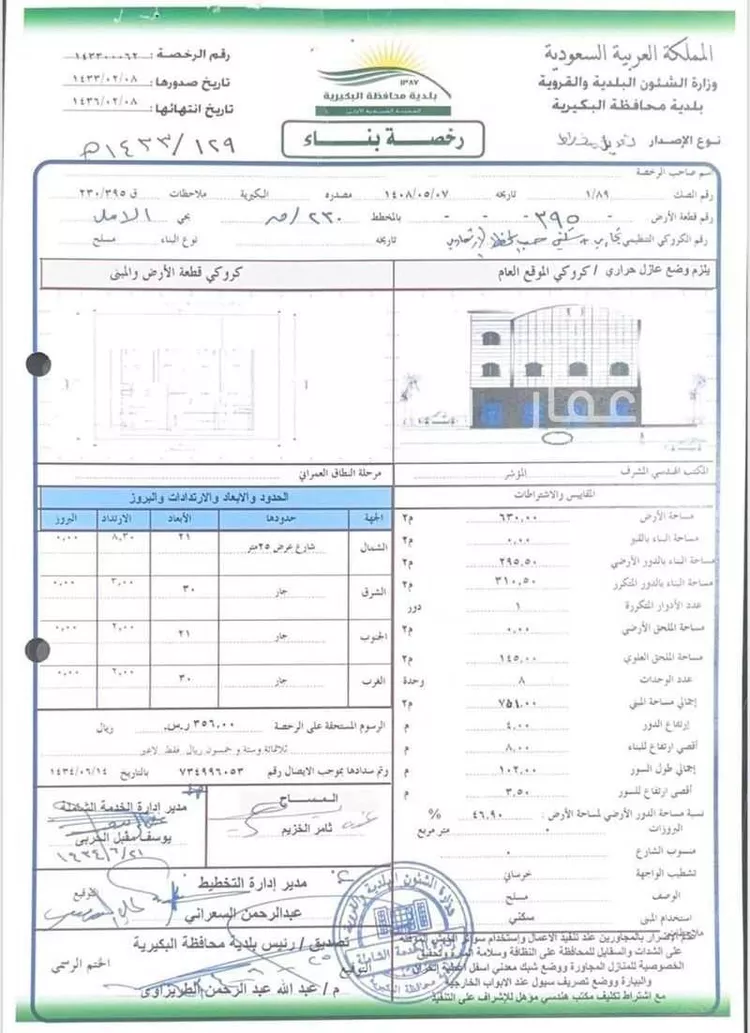 المملكة العربية السعودية
وزارة الشئون البلدية والقروية
بلدية محافظة البكيرية
١٣٨٧
بلدية محافظة البكيرية
رقم الرخصة : ١٤٣٣٠٠٠٦٢
تاريخ صدورها : ١٤٣٣/٠٢/٠٨
تاريخ انتهائها : ١٤٣٦/٠٢/٠٨
نوع الإصدار
رخصة بناء
١٤٣٣/١٢٩
اسم صاحب الرخصة
رقم الصك ١/٨٩ تاريخه ١٤٠٨/٠٥/٠٧ مصدره البكيرية ملاحظات ق ٢٣٠/٣٩٥
رقم قطعة الأرض - ٣٩٥ - - - بالمخطط ٢٣٠ بحي الامل
رقم الكروكي التنظيمي تاريخه نوع البناء مسلح
يلزم وضع عازل حراري / كروكي الموقع العام
كروكي قطعة الأرض والمبنى
عقار
المكتب الهندسي المشرف المؤشر
مرحلة النطاق العمراني
المقاييس والاشتراطات
مساحة الأرض ٦٣٠,٠٠ م٢
مساحة البناء بالقبو ٠,٠٠ م٢
مساحة البناء بالدور الأرضي ٢٩٥,٥٠ م٢
مساحة البناء بالدور المتكرر ٣١٠,٥٠ م٢
عدد الأدوار المتكررة ١ دور
مساحة الملحق الأرضي ٠,٠٠ م٢
مساحة الملحق العلوي ١٤٥,٠٠ م٢
عدد الوحدات ٨ وحدة
إجمالي مساحة المبنى ٧٥٤,٠٠ م٢
إرتفاع الدور ٤,٠٠ م
أقصى ارتفاع للبناء ٨,٠٠ م
إجمالي طول السور ١٠٢,٠٠ م
أقصى ارتفاع للسور ٣,٥٠ م
نسبة مساحة الدور الأرضي لمساحة الأرض : ٤٦,٩٠ %
البروزات ٠ متر مربع
منسوب الشارع ٠
تشطيب الواجهة خرساني
الوصف مسلح
استخدام المبنى سكني
ملاحظات
الحدود والابعاد والارتدادات والبروز
الجهة حدودها الأبعاد الارتداد البروز
الشمال شارع عرض ٢٥متر ٢١ ٨,٣٠ ٠,٠٠
الشرق جار ٣٠ ٣,٠٠ ٠,٠٠
الجنوب جار ٢١ ٢,٠٠ ٠,٠٠
الغرب جار ٣٠ ٢,٠٠ ٠,٠٠
الرسوم المستحقة على الرخصة ٣٥٦,٠٠ ر.س. ريال
ثلاثمائة وستة و خمسون ريال فقط لاغير
وتم سدادها بموجب الايصال رقم ٧٣٤٩٩٦٠٥٣ بالتاريخ ١٤٣٤/٠٦/١٤
المساح
ثامر الخزيم
مدير إدارة الخدمة الشاملة
يوسف مقبل الحربي
١٤٣٤/٦/٢١
مدير إدارة التخطيط
عبدالرحمن السعراني
التوقيع
تصديق / رئيس بلدية محافظة البكيرية
التوقيع
الختم الرسمي
م / عبد الله عبد الرحمن الطريزاوي
وزارة الشئون البلدية والقروية
عدم الإضرار بالمجاورين عند تنفيذ الاعمال وإستخدام سواتر
على الشدات والسقايل للمحافظة على النظافة وسلامة المارة ولتحقيق
الخصوصية للمنازل المجاورة ووضع شبك معدني اسفل أغطية الخزان
والبيارة ووضع تصريف سيول عند الابواب الخارجية
مع اشتراط تكليف مكتب هندسي مؤهل للإشراف على التنفيذ